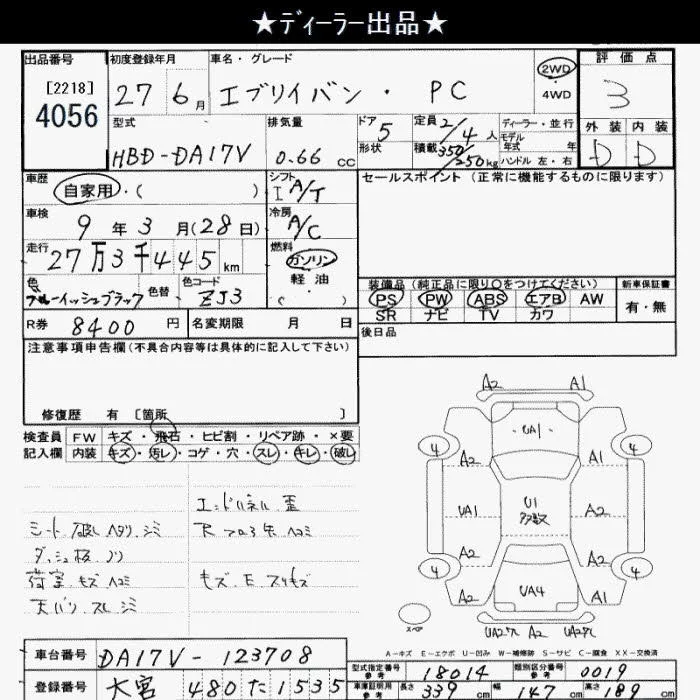 ★ディーラー出品★
出品番号 初度登録年月 車名・グレード 評価点
[2218] 4056 27 6月 エブリイバン・PC 2WD 4WD 3
型式 排気量 ドア 5 定員 2/4人 ディーラー・並行 外装 内装
HBD-DA17V 0.66cc 形状 積載 350/250kg モデル年式 年 D D
ハンドル 左・右
車歴 自家用・( ) シフト I A/T セールスポイント(正常に機能するものに限ります)
車検 9年3月(28日) 冷房 A/C
走行 27万3千445km 燃料 ガソリン 軽油 ( )
色 ブルーイッシュブラック 色替 色コード ZJ3
装備品(純正品に限り〇をつけてください) 新車保証書
PS PW ABS エアB AW 有・無
SR ナビ TV カワ
R券 8400円 名変期限 月 日 後日品
注意事項申告欄(不具合内容等は具体的に記入して下さい)
修復歴 有 [箇所 ]
検査員 FW キズ・飛石・ヒビ割・リペア跡・×要
記入欄 内装 キズ・汚レ・コゲ・穴・スレ・キレ・破レ
エンドパネル 歪
シート 破レ ヘタリ シミ
ダッシュ板 ノリ
荷室 キズ ヘコミ キズ・E スリキズ
天バリ スレ シミ
A2 A1
UA1
4 4
A2 A1
UA1 U1 多数 A2
A2 A2
4 4
A2 UA4 A1
スペア A2
A-キズ E-エクボ U-凹み W-補修跡 S-サビ C-腐食 XX-交換済
車台番号 DA17V-123708
型式指定番号 参考 18014 類別区分番号 参考 0019
登録番号 大宮 480 た 1535
車庫証明用 参考 長さ 339cm 幅 147cm 高さ 189cm